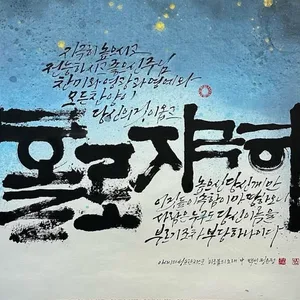 지극히 높으시고
전능하시고 좋으신 주님
찬미와 영광과 영예와
모든 찬양이
당신의 것이옵고
홀로 지극히
높으신 당신께만
이것들이 속함이 마땅하오니
사람은 누구도 당신 이름을
부르기조차 부당하나이다